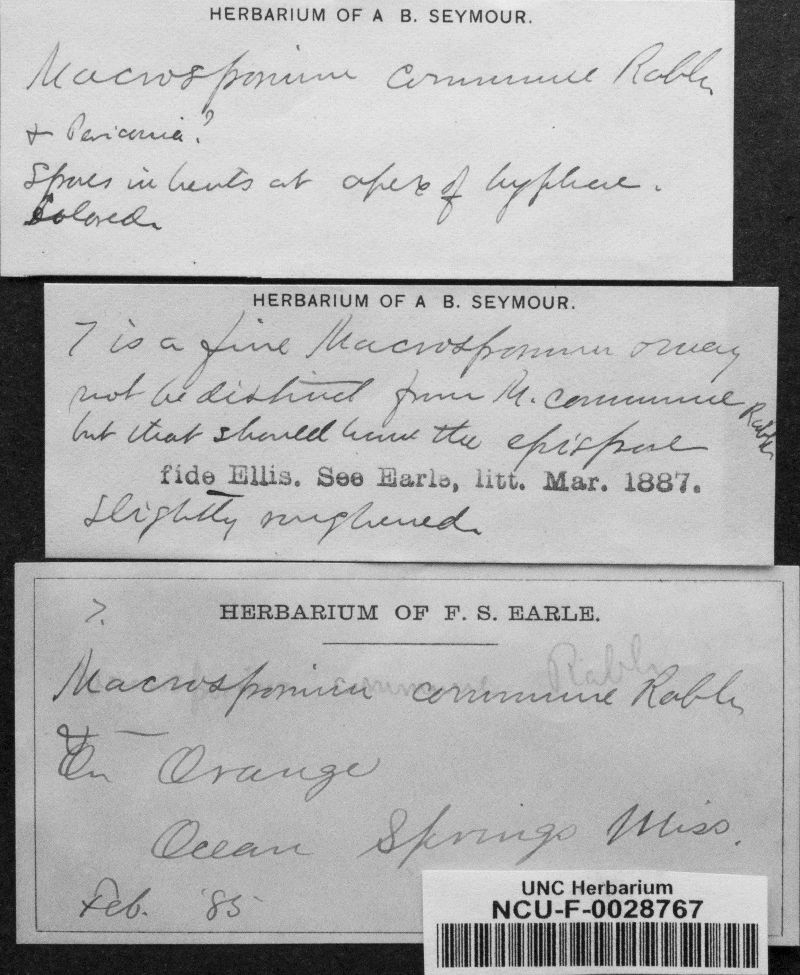 HERBARIUM OF A B. SEYMOUR.
Macrosporium commune Rabh
+ Periconia?
Spores in heads at apex of hyphae.
Colored.
HERBARIUM OF A B. SEYMOUR.
7 is a fine Macrosporium & may
not be distinct from M. commune Rabh
but that should have the epispore
fide Ellis. See Earle, litt. Mar. 1887.
slightly roughened.
7. HERBARIUM OF F. S. EARLE.
Macrosporium commune Rabh
On Orange
Ocean Springs Miss.
Feb. '85
UNC Herbarium
NCU-F-0028767